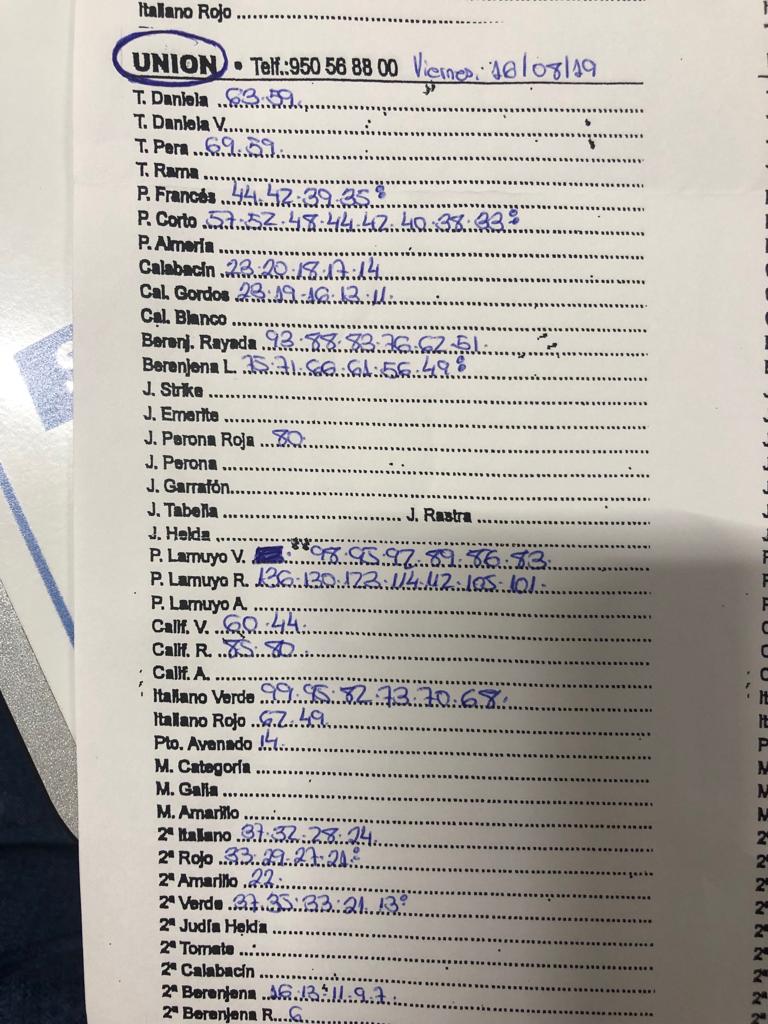 Italiano Rojo
UNION • Telf.:950 56 88 00 Viernes. 16/08/19
T. Daniela 63.59.
T. Daniela V.
T. Pera 69.59.
T. Rama
P. Francés 44.42.39.35.
P. Corto 57.52.48.44.42.40.38.33.
P. Almería
Calabacín 23.20.18.17.14
Cal. Gordos 23.19.16.13.11.
Cal. Blanco
Berenj. Rayada 93.88.83.76.62.51.
Berenjena L. 75.71.66.61.56.49.
J. Strike
J. Emerite
J. Perona Roja 80.
J. Perona
J. Garrafón
J. Tabella J. Rastra
J. Helda
P. Lamuyo V. 98.95.92.89.86.83.
P. Lamuyo R. 136.130.123.114.112.105.101.
P. Lamuyo A.
Calif. V. 60.44.
Calif. R. 85.80.
Calif. A.
Italiano Verde 99.95.82.73.70.68.
Italiano Rojo 62.49.
Pto. Avenado 14.
M. Categoría
M. Galia
M. Amarillo
2ª Italiano 37.32.28.24.
2ª Rojo 33.29.27.21.
2ª Amarillo 22.
2ª Verde 37.35.33.21.13.
2ª Judía Helda
2ª Tomate
2ª Calabacín
2ª Berenjena 16.13.11.9.7.
2ª Berenjena R. 6